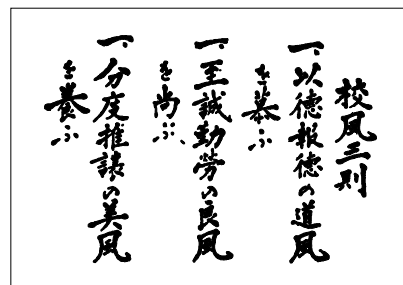 校風三則
一、以徳報徳の道風
を慕ふ
一、至誠勤労の良風
を尚ぶ、
一、分度推譲の美風
を養ふ